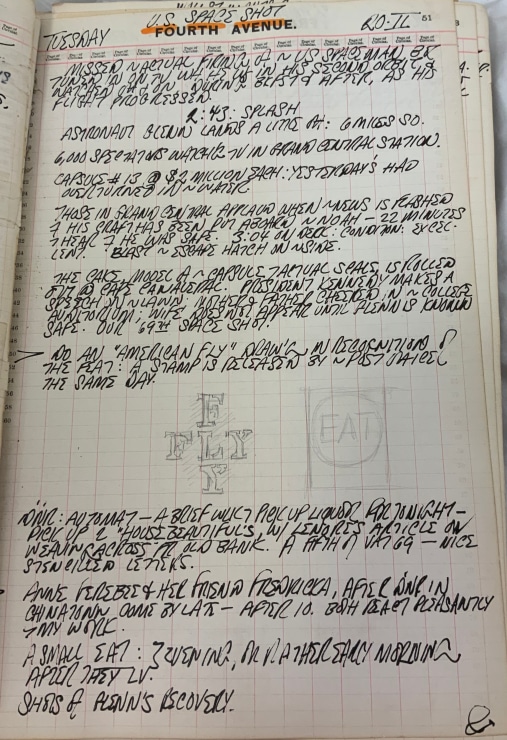 U.S. SPACE SHOT
TUESDAY
FOURTH AVENUE.
20·II
51
MISSED ACTUAL FIRING OF U.S. SPACEMAN BY
TUNED IN ON TV WHILE IN HIS SECOND ORBIT, &
WATCHED DURING & AFTER, AS HIS
FLIGHT PROGRESSED.
2:43: SPLASH
ASTRONAUT GLENN LANDS A LITE AT: 6 MILES SO.
6,000 SPECTATORS WATCH TV IN GRAND CENTRAL STATION.
CAPSULE #13 @ $2 MILLION EACH: YESTERDAY'S HAD
OVERTURNED IN ~ WATER
THOSE IN GRAND CENTRAL APPLAUD WHEN ~ NEWS IS FLASHED
HIS CRAFT HAS BEEN PUT ABOARD ~ NOAH — 22 MINUTES
HE WAS SAFE. 3:04 ON DECK: CONDITION: EXCEL
LENT. BLAST ~ ESCAPE HATCH ON INSIDE.
THE CAKE, MODEL OF ~ CAPSULE ACTUAL SCALE, IS ROLLED
OUT @ CAPE CANAVERAL. PRESIDENT KENNEDY MAKES A
SPEECH ON ~ LAWN: MOTHER & FATHER CHEERED IN ~ COLLEGE
AUDITORIUM: WIFE DOES NOT APPEAR UNTIL GLENN IS KNOWN
SAFE. OUR 69TH SPACE SHOT.
DO AN "AMERICAN FLY" DRAW'G ~ IN RECOGNITION OF
THE FEAT: A STAMP IS RELEASED BY ~ POST OFFICE
THE SAME DAY.
F
FLY
Y
EAT
DINR: AUTOMAT — A BRIEF WALK PICK UP LIQUOR FOR TONIGHT —
PICK UP 2 "HOUSE BEAUTIFUL'S" W/ LENORE'S ARTICLE ON
WEAVING ACROSS FR OLD BANK. A FIFTH OF VAT 69 — NICE
STENCILLED LETTERS.
ANNE FEREBEE & HER FRIEND FREDRICKA, AFTER DINR IN
CHINATOWN, COME BY LATE — AFTER 10. BOTH REACT PLEASANTLY
MY WORK.
A SMALL EAT: EVENING, OR RATHER EARLY MORNING
AFTER THEY LV.
SHOTS OF GLENN'S RECOVERY.